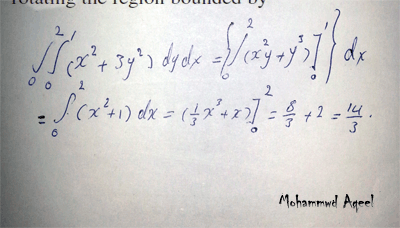 rotating the region bounded by
∫₀² ∫₀¹ (x² + 3y²) dy dx = {∫₀² (x²y + y³)]₀¹} dx
= ∫₀² (x²+1) dx = (⅓x³+x)]₀² = 8/3 + 2 = 14/3 .
Mohammwd Aqeel